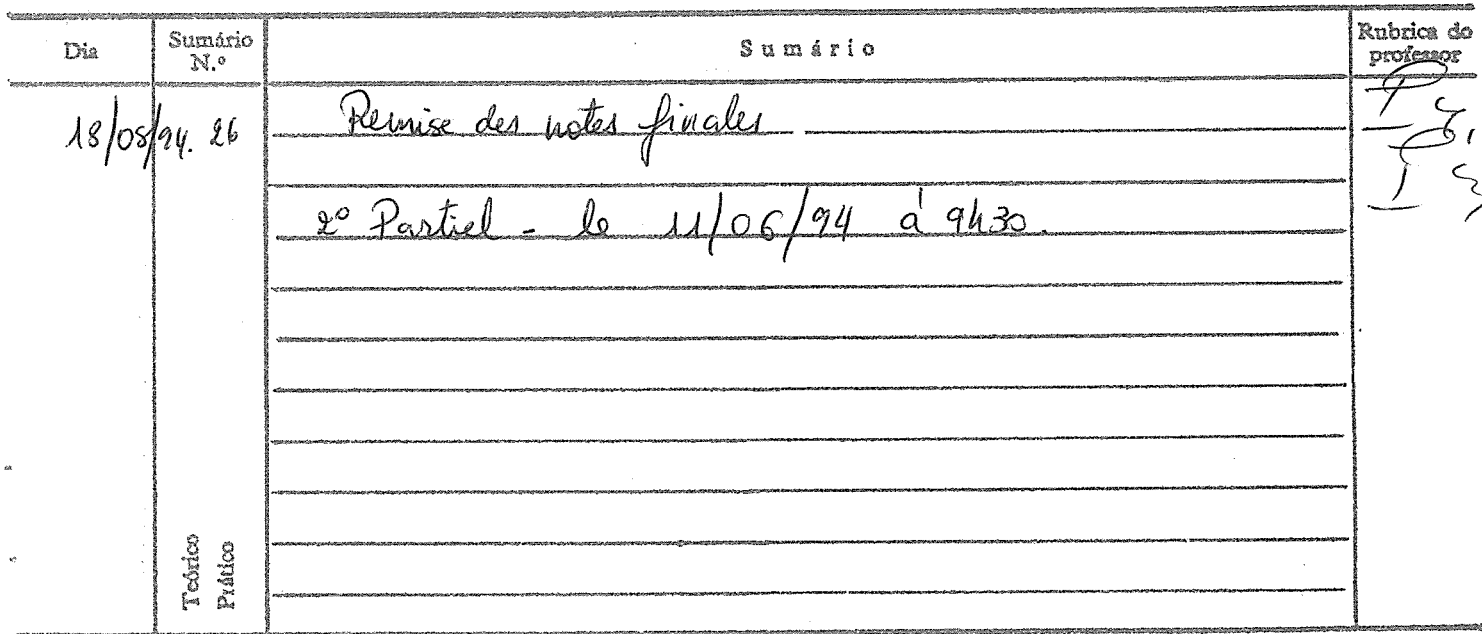 Dia
Sumário N.º
Sumário
Rubrica do professor
18/05/94. 26
Remise des notes finales
2º Partiel - le 11/06/94 à 9h30.
Teórico
Prático